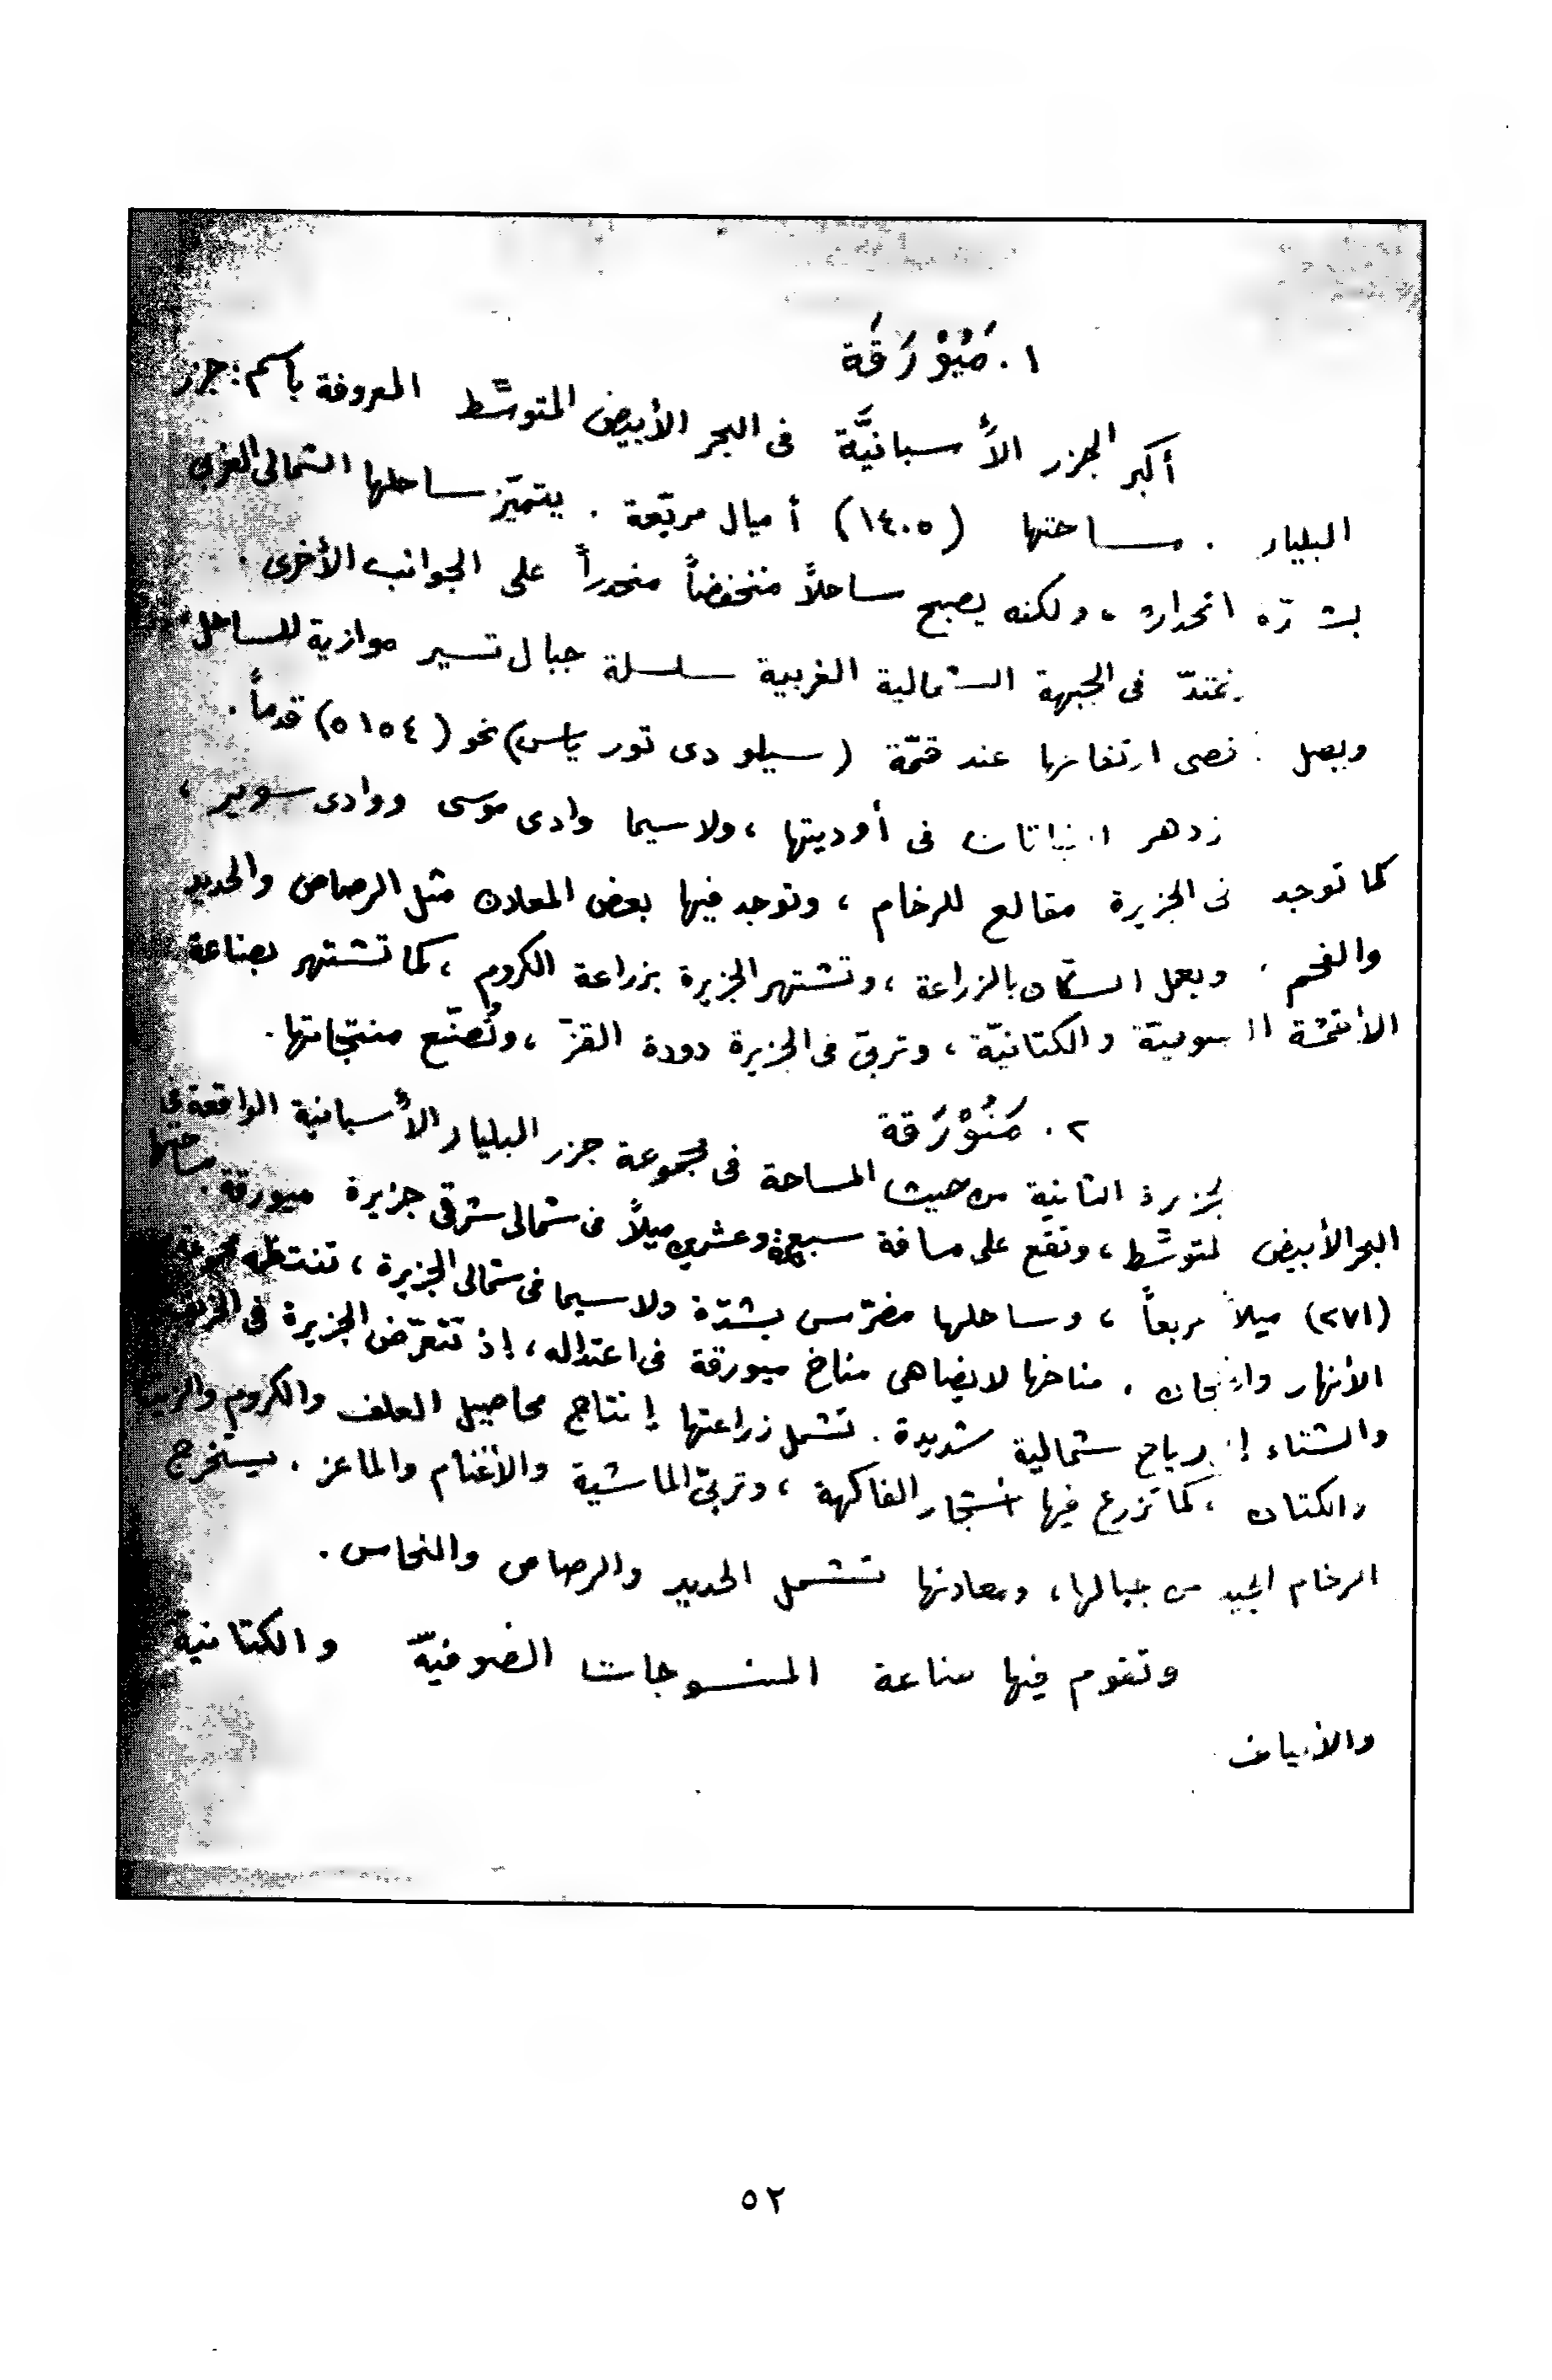 ١. مَيُوْرَقَة
أكبر الجزر الأسبانيَّة فى البحر الأبيض المتوسّط المعروفة باسم: جزر
البليار . مساحتها (١٤٠٥) أميال مربّعة . يتميّز ساحلها الشمالى الغربى
بشدّة انحداره ، ولكنه يصبح ساحلاً منخفضاً منحدراً على الجوانب الأخرى .
تمتدّ فى الجبهة الشمالية الغربية سلسلة جبال تسير موازية للساحل
ويصل قصى ارتفاعها عند قمّة (سيلو دى تور ياس) نحو (٥١٥٤) قدماً .
زدهر النباتات فى أوديتها ، ولاسيما وادى موسى ووادى سوير ،
كما توجد فى الجزيرة مقالع للرخام ، وتوجد فيها بعض المعادن مثل الرصاص والحديد
والفحم . ويعمل السكّان بالزراعة ، وتشتهر الجزيرة بزراعة الكروم ، كما تشتهر بصناعة
الأقمشة الصوفيّة والكتانيّة ، وتربىّ فى الجزيرة دودة القزّ ، وتُصنّع منتجاتها .
٢. مَنُوْرَقة
لجزيرة الثانية من حيث المساحة فى مجموعة جزر البليار الأسبانية الواقعة فى
البحر الأبيض لمتوسّط ، وتقع على مسافة سبعة وعشرين ميلاً فى شمالى شرقى جزيرة ميورقة . مساحتها
(٢٧١) ميلاً مربعاً ، وساحلها مضرّس بشدّة ولاسيما فى شمالى الجزيرة ، تنتظمه مجموعة
الأنهار والخلجان . مناخها لا يضاهى مناخ ميورقة فى اعتداله ، إذ تتعرّض الجزيرة فى الخريف
والشتاء إلى رياح شمالية شديدة . تشمل زراعتها إنتاج محاصيل العلف والكروم والزيت
والكتان ، كما تزرع فيها أشجار الفاكهة ، وتربىّ الماشية والأغنام والماعز . يستخرج
الرخام الجيد من جبالها ، ومعادنها تشمل الحديد والرصاص والنحاس .
وتقوم فيها صناعة المنسوجات الصوفيّة والكتانية
والألياف
٥٢